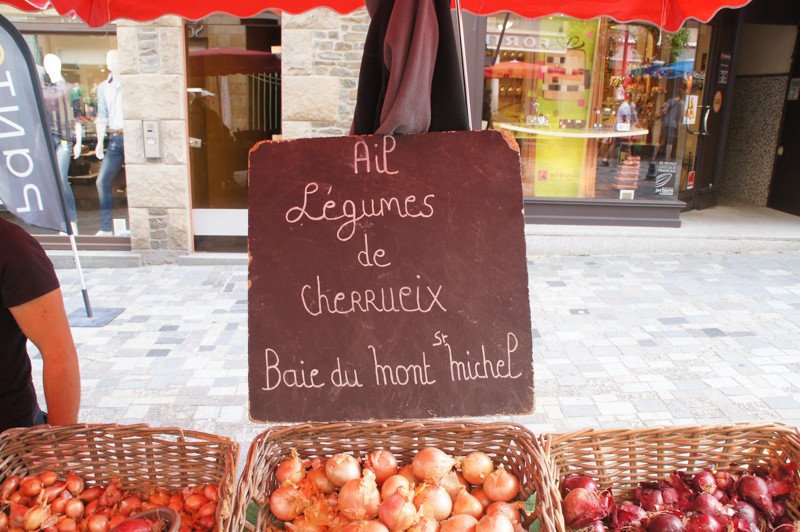 Ail
Légumes
de
CHERRUEIX
Baie du Mont St Michel